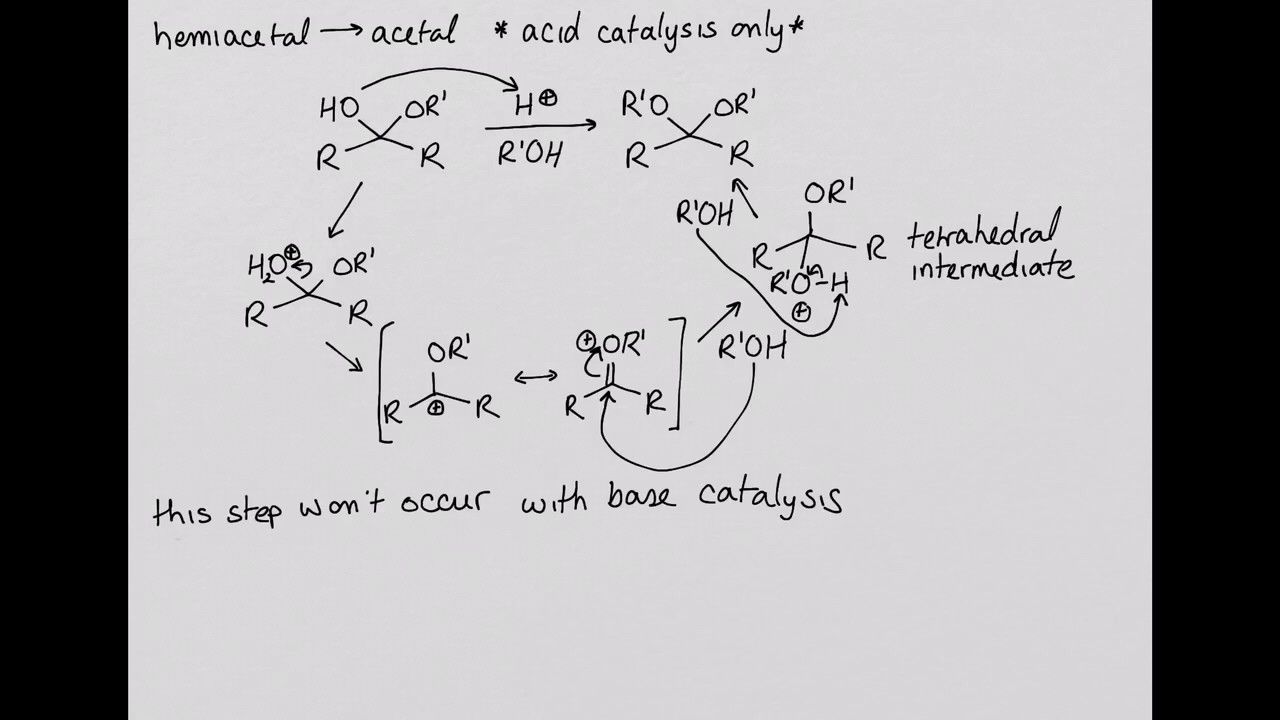 hemiacetal → acetal * acid catalysis only*
HO OR' H⊕ R'O OR'
R R R'OH R R
OR'
R'OH
R R tetrahedral
H₂O⊕ OR' R'O-H intermediate
⊕
R R
OR' ⊕OR' R'OH
R ⊕ R ↔ R R
this step won't occur with base catalysis